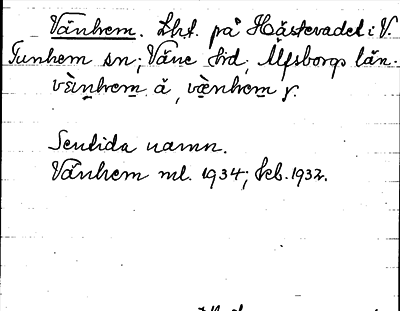 Vänhem. Lht. på Hästevadet i V.
Tunhem sn; Väne hd, Älfsborgs län.
vènhem ä, vænhem y.
Sentida namn.
Vänhem ml. 1934; feb. 1932.